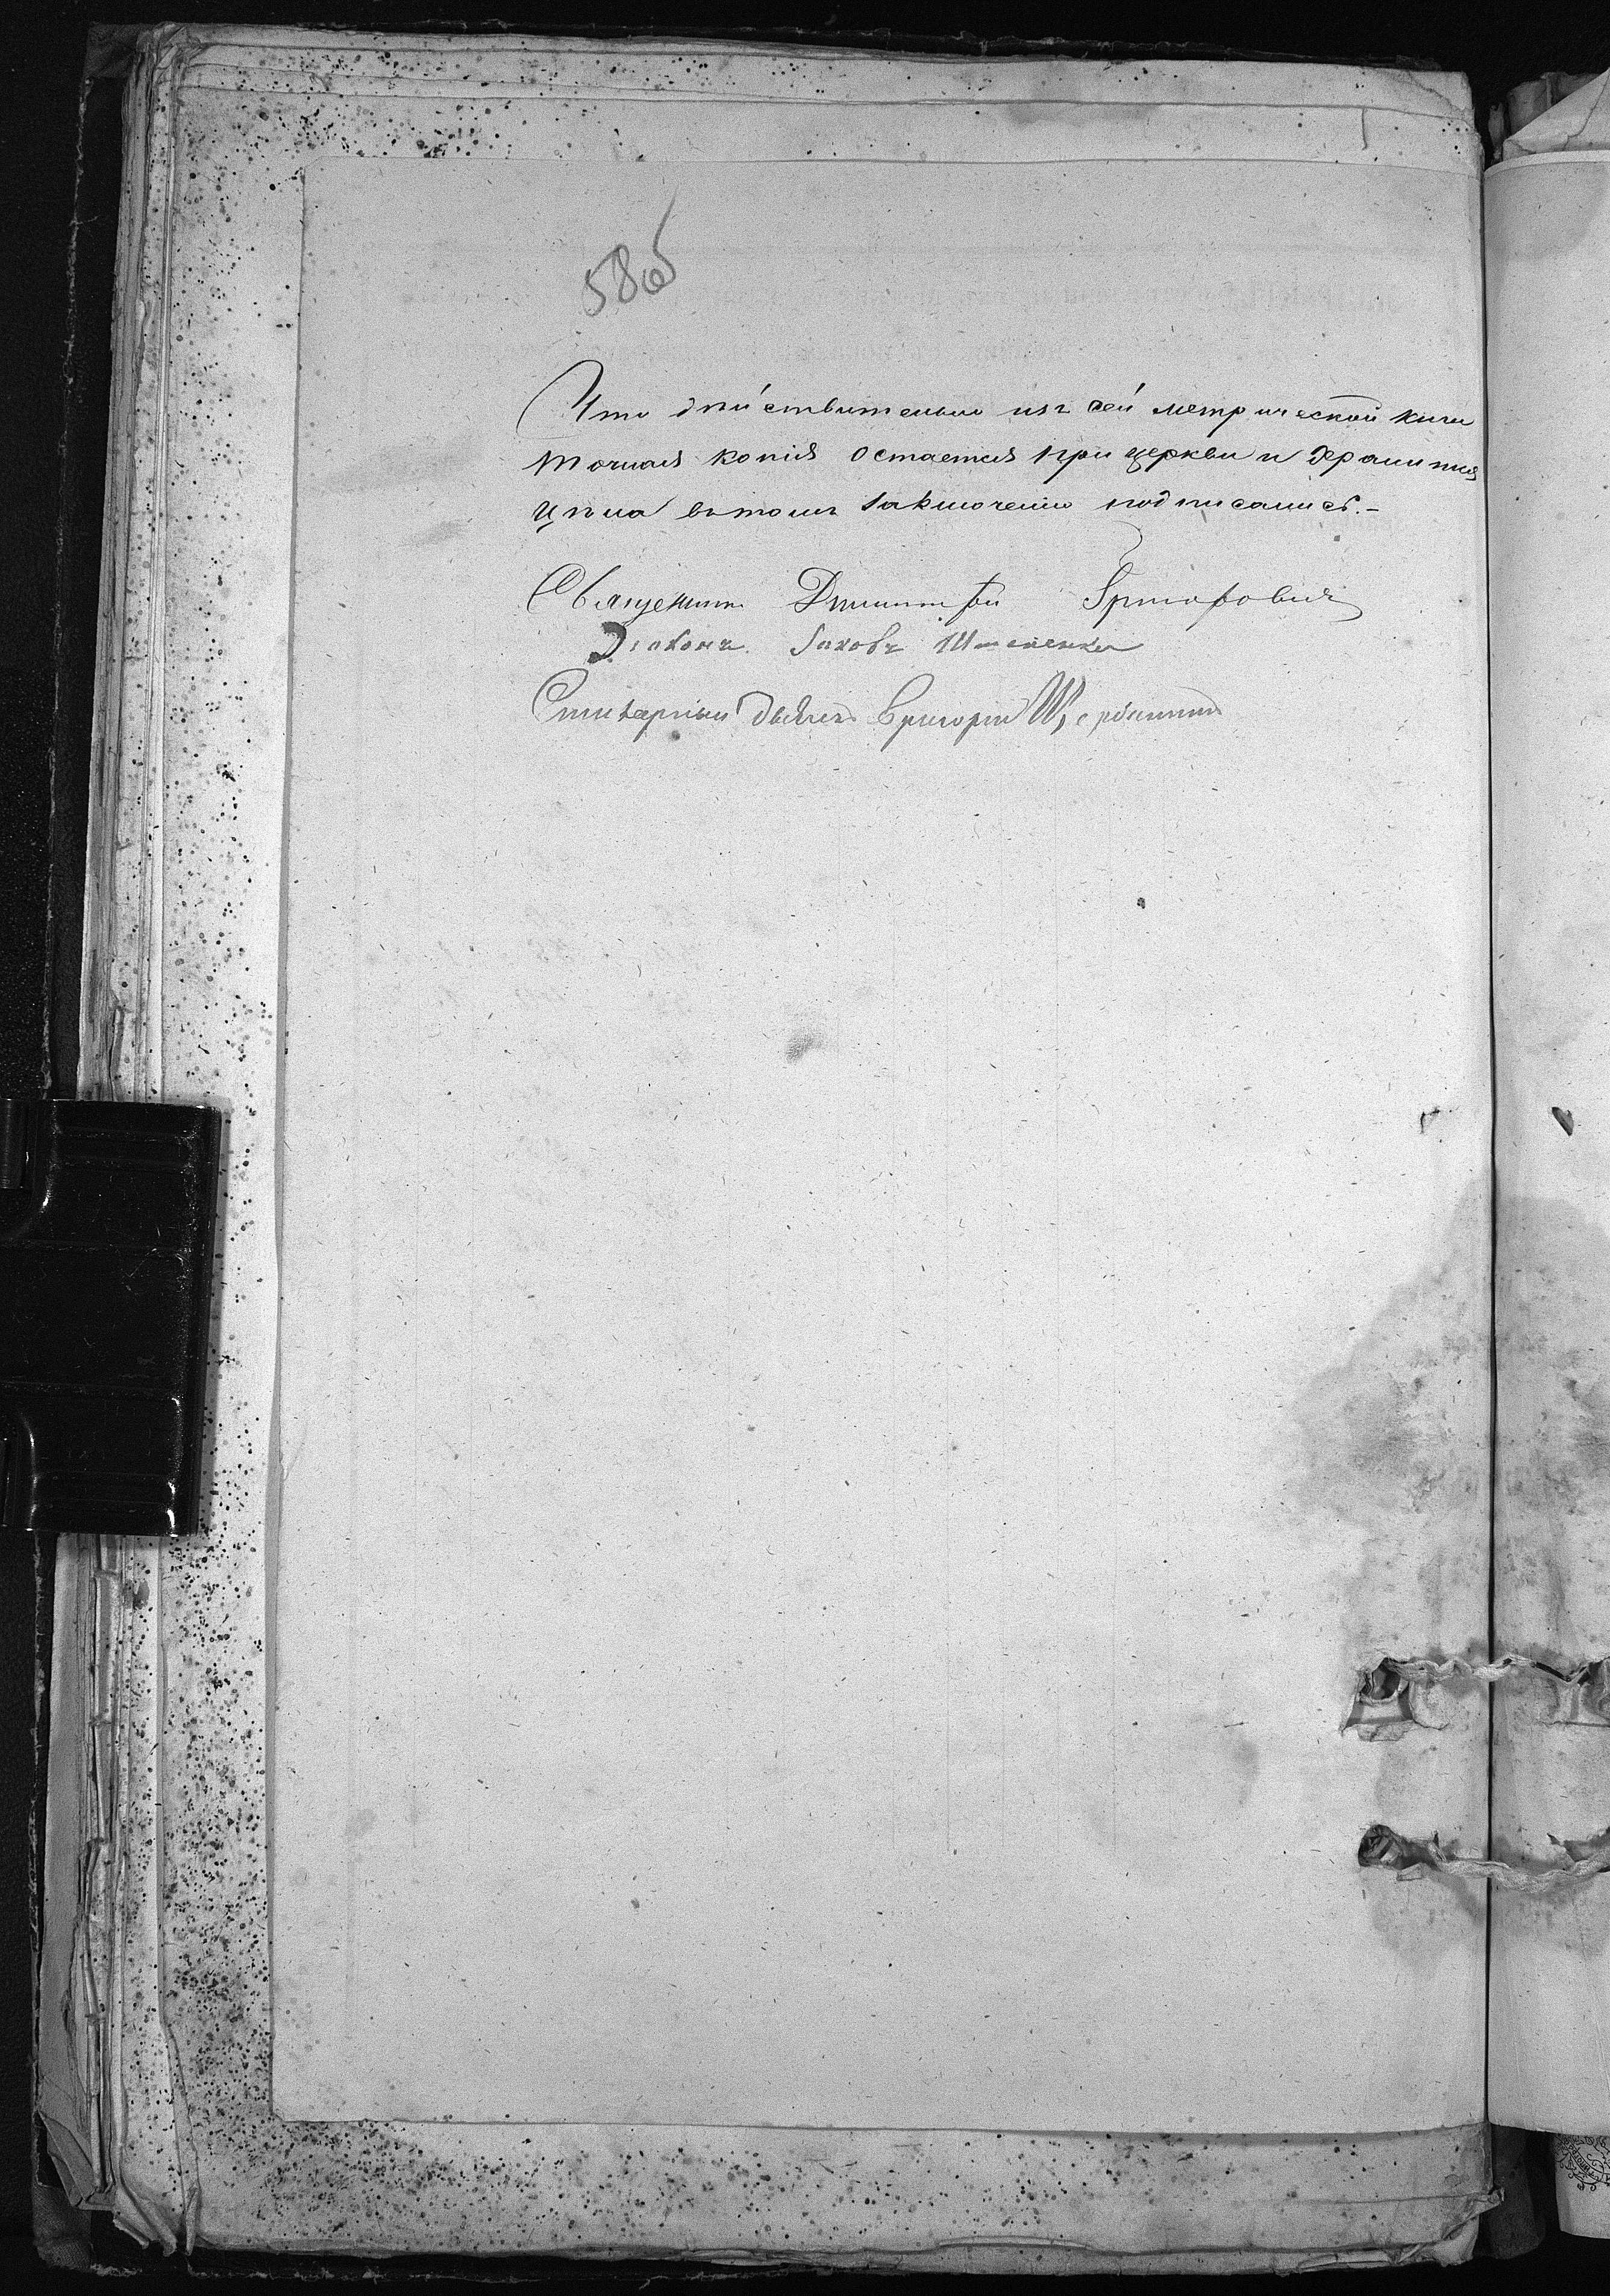 58об
Что дѣйствительно изъ сей метрической книги
точная копія остается при церкви и хранится
цѣла вътомъ заключеніи подписались.-
Священник Димитрій Григорович
Діаконъ Іаковъ
дьячекъ Григорій